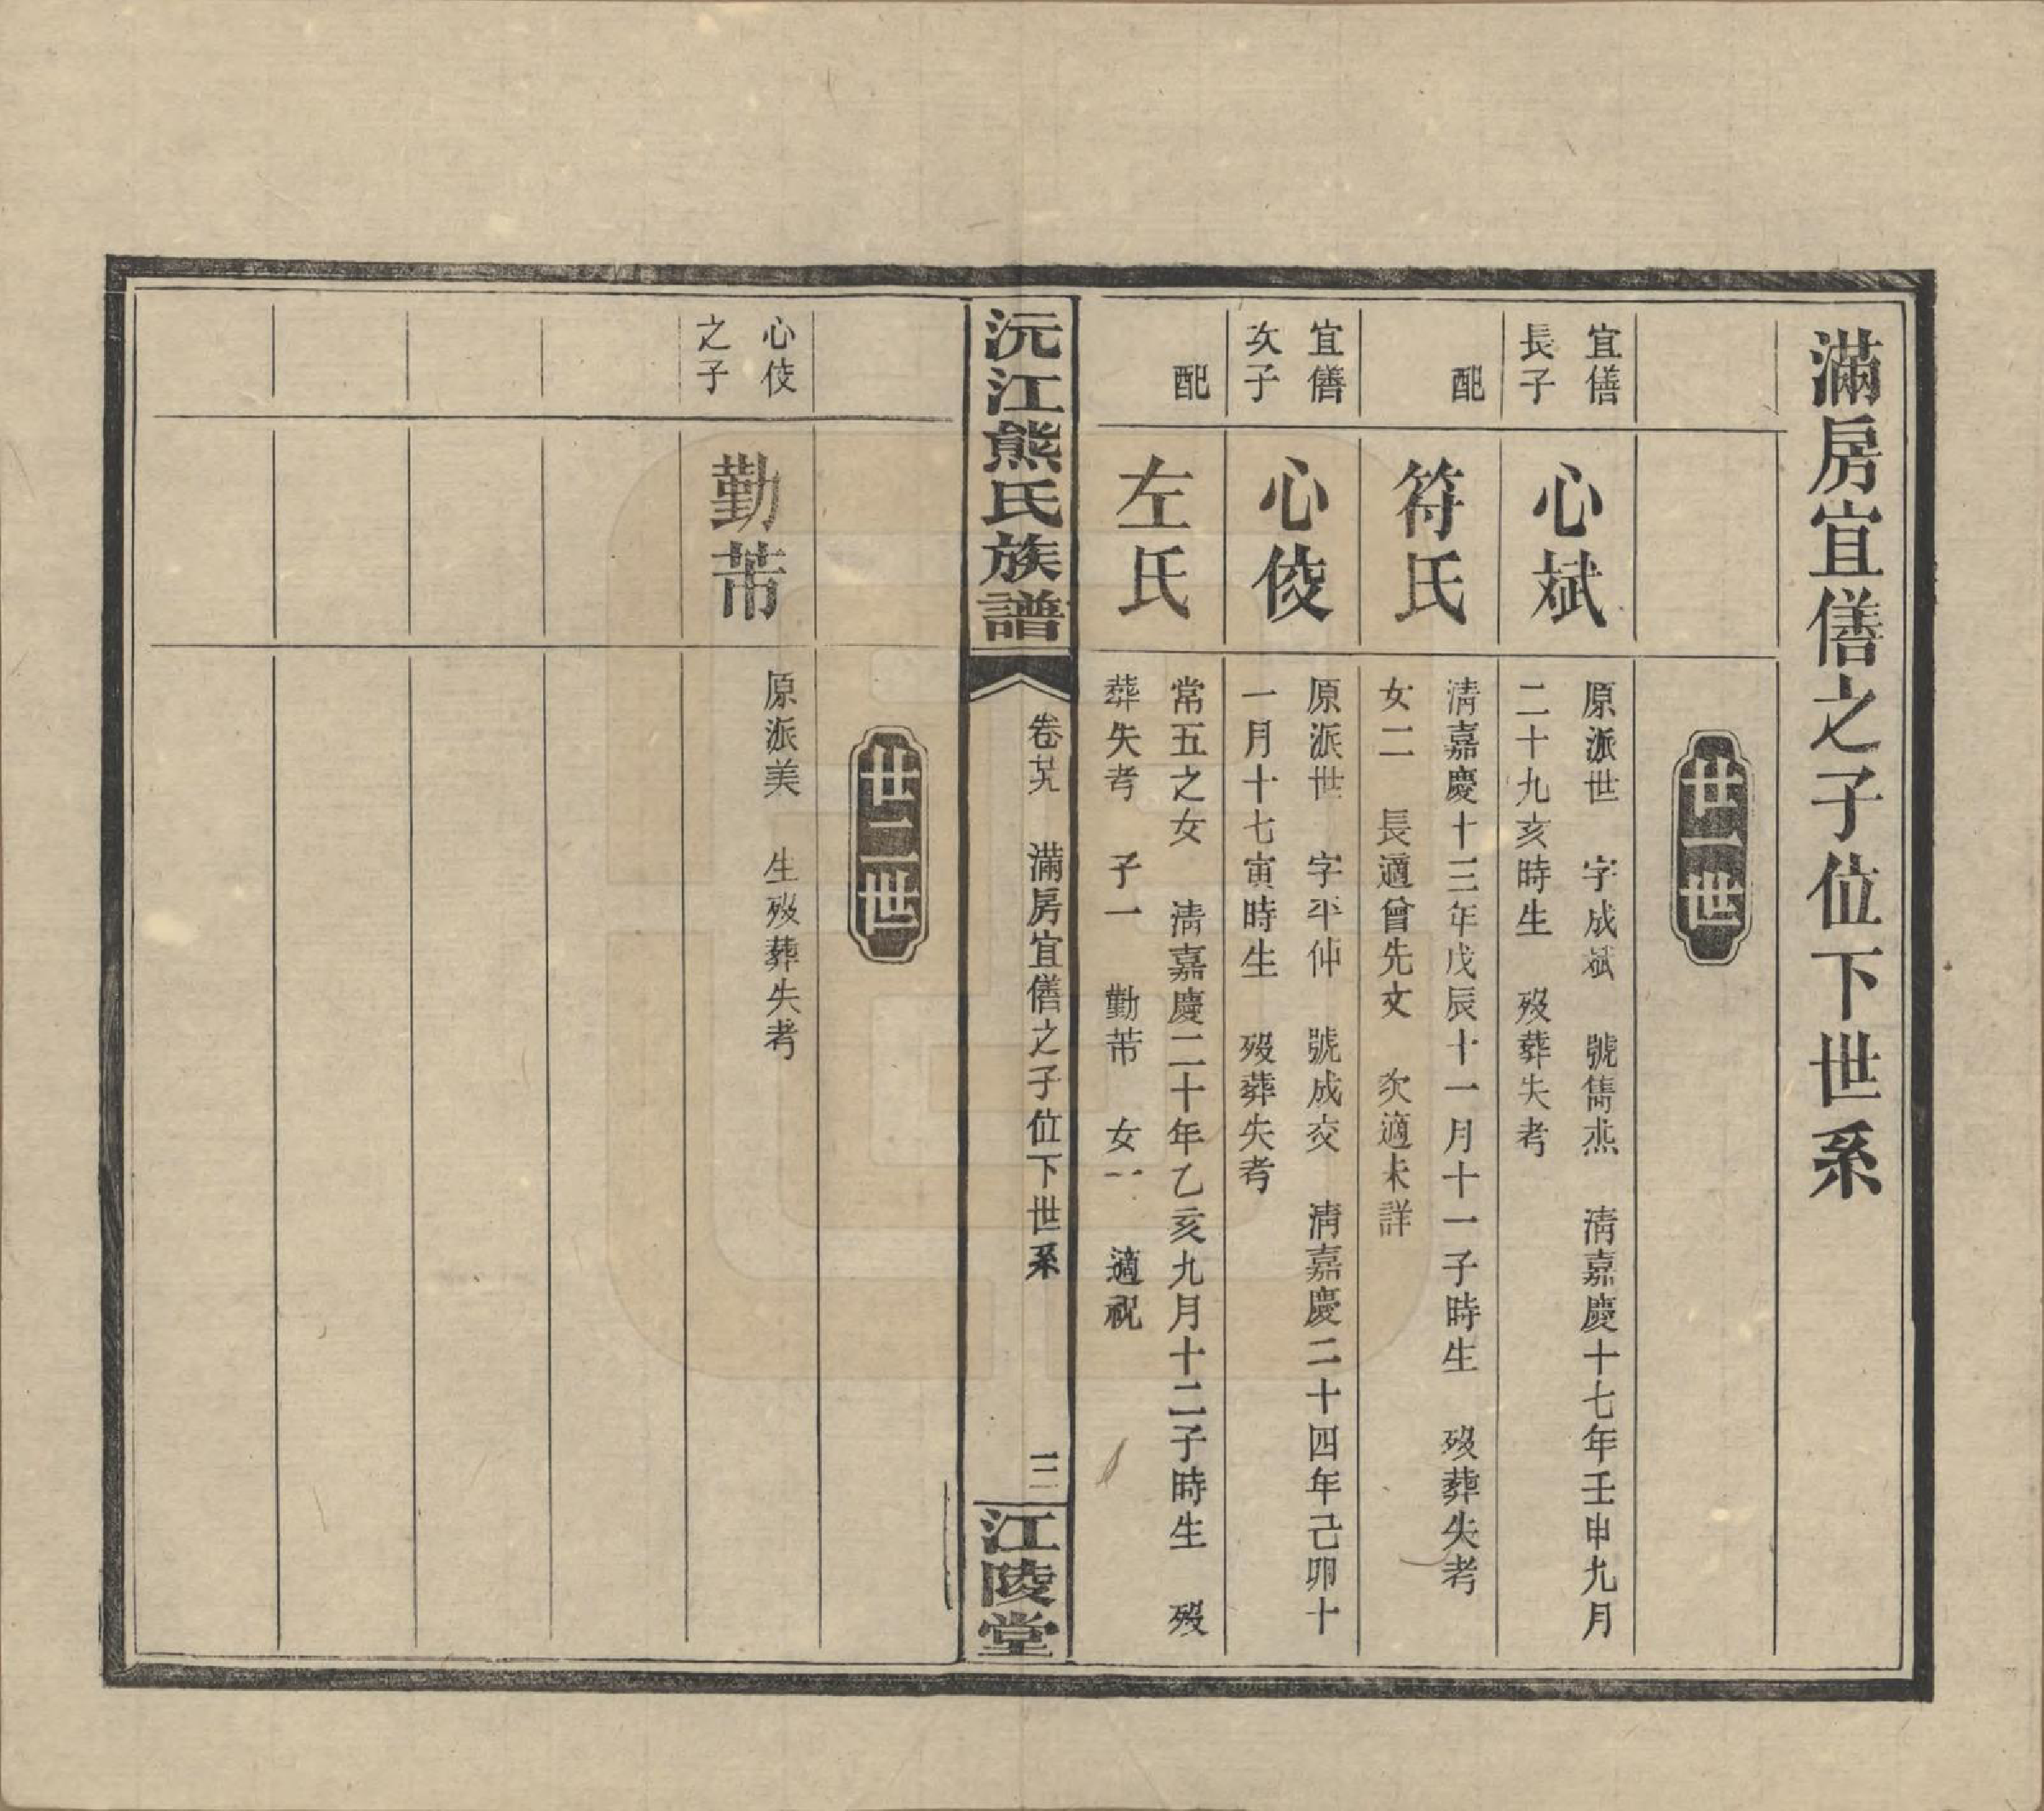 滿房宜僐之子位下世系
世一世
宜僐
長子
心斌
原派世　字成斌　號儁烝　清嘉慶十七年壬申九月
二十九亥時生　歿葬失考
配
符氏
清嘉慶十三年戊辰十一月十一子時生　歿葬失考
女二　長適曾先文　次適未詳
宜僐
次子
心倰
原派世　字平仲　號成交　清嘉慶二十四年己卯十
一月十七寅時生　歿葬失考
配
左氏
常五之女　清嘉慶二十年乙亥九月十二子時生　歿
葬失考　子一　勤芾　女一　適祝
沅江熊氏族譜
卷廿九　滿房宜僐之子位下世系
三
江陵堂
世二世
心伎
之子
勤芾
原派美　生歿葬失考